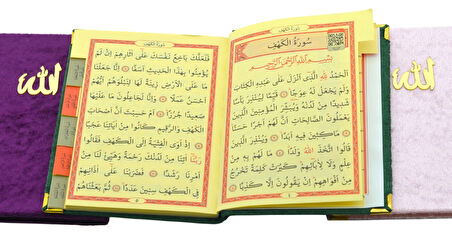 الله
سورة الكهف
سُورَةُ الْكَهْفِ
بِسْمِ اللّٰهِ الرَّحْمٰنِ الرَّحِيمِ
اَلْحَمْدُ لِلّٰهِ الَّذِى اَنْزَلَ عَلٰى عَبْدِهِ الْكِتَابَ
وَلَمْ يَجْعَلْ لَهُ عِوَجًا ۞ قَيِّمًا لِيُنْذِرَ بَاْسًا
شَدِيدًا مِنْ لَدُنْهُ وَيُبَشِّرَ الْمُؤْمِنِينَ الَّذِينَ
يَعْمَلُونَ الصَّالِحَاتِ اَنَّ لَهُمْ اَجْرًا حَسَنًا
۞ مَاكِثِينَ فِيهِ اَبَدًا ۞ وَيُنْذِرَ الَّذِينَ
قَالُوا اتَّخَذَ اللّٰهُ وَلَدًا ۞ مَا لَهُمْ بِهِ مِنْ
عِلْمٍ وَلَا لِاٰبَائِهِمْ كَبُرَتْ كَلِمَةً تَخْرُجُ
مِنْ اَفْوَاهِهِمْ اِنْ يَقُولُونَ اِلَّا كَذِبًا ۞
سورة الكهف
فَلَعَلَّكَ بَاخِعٌ نَفْسَكَ عَلٰى اٰثَارِهِمْ اِنْ لَمْ
يُؤْمِنُوا بِهٰذَا الْحَدِيثِ اَسَفًا ۞ اِنَّا جَعَلْنَا
مَا عَلَى الْاَرْضِ زِينَةً لَهَا لِنَبْلُوَهُمْ اَيُّهُمْ
اَحْسَنُ عَمَلًا ۞ وَاِنَّا لَجَاعِلُونَ مَا عَلَيْهَا
صَعِيدًا جُرُزًا ۞ اَمْ حَسِبْتَ اَنَّ اَصْحَابَ
الْكَهْفِ وَالرَّقِيمِ كَانُوا مِنْ اٰيَاتِنَا عَجَبًا
۞ اِذْ اَوَى الْفِتْيَةُ اِلَى الْكَهْفِ فَقَالُوا
رَبَّنَا اٰتِنَا مِنْ لَدُنْكَ رَحْمَةً وَهَيِّئْ لَنَا مِنْ
اَمْرِنَا رَشَدًا ۞ فَضَرَبْنَا عَلٰى اٰذَانِهِمْ
فِى الْكَهْفِ سِنِينَ عَدَدًا ۞ ثُمَّ بَعَثْنَاهُمْ
الله